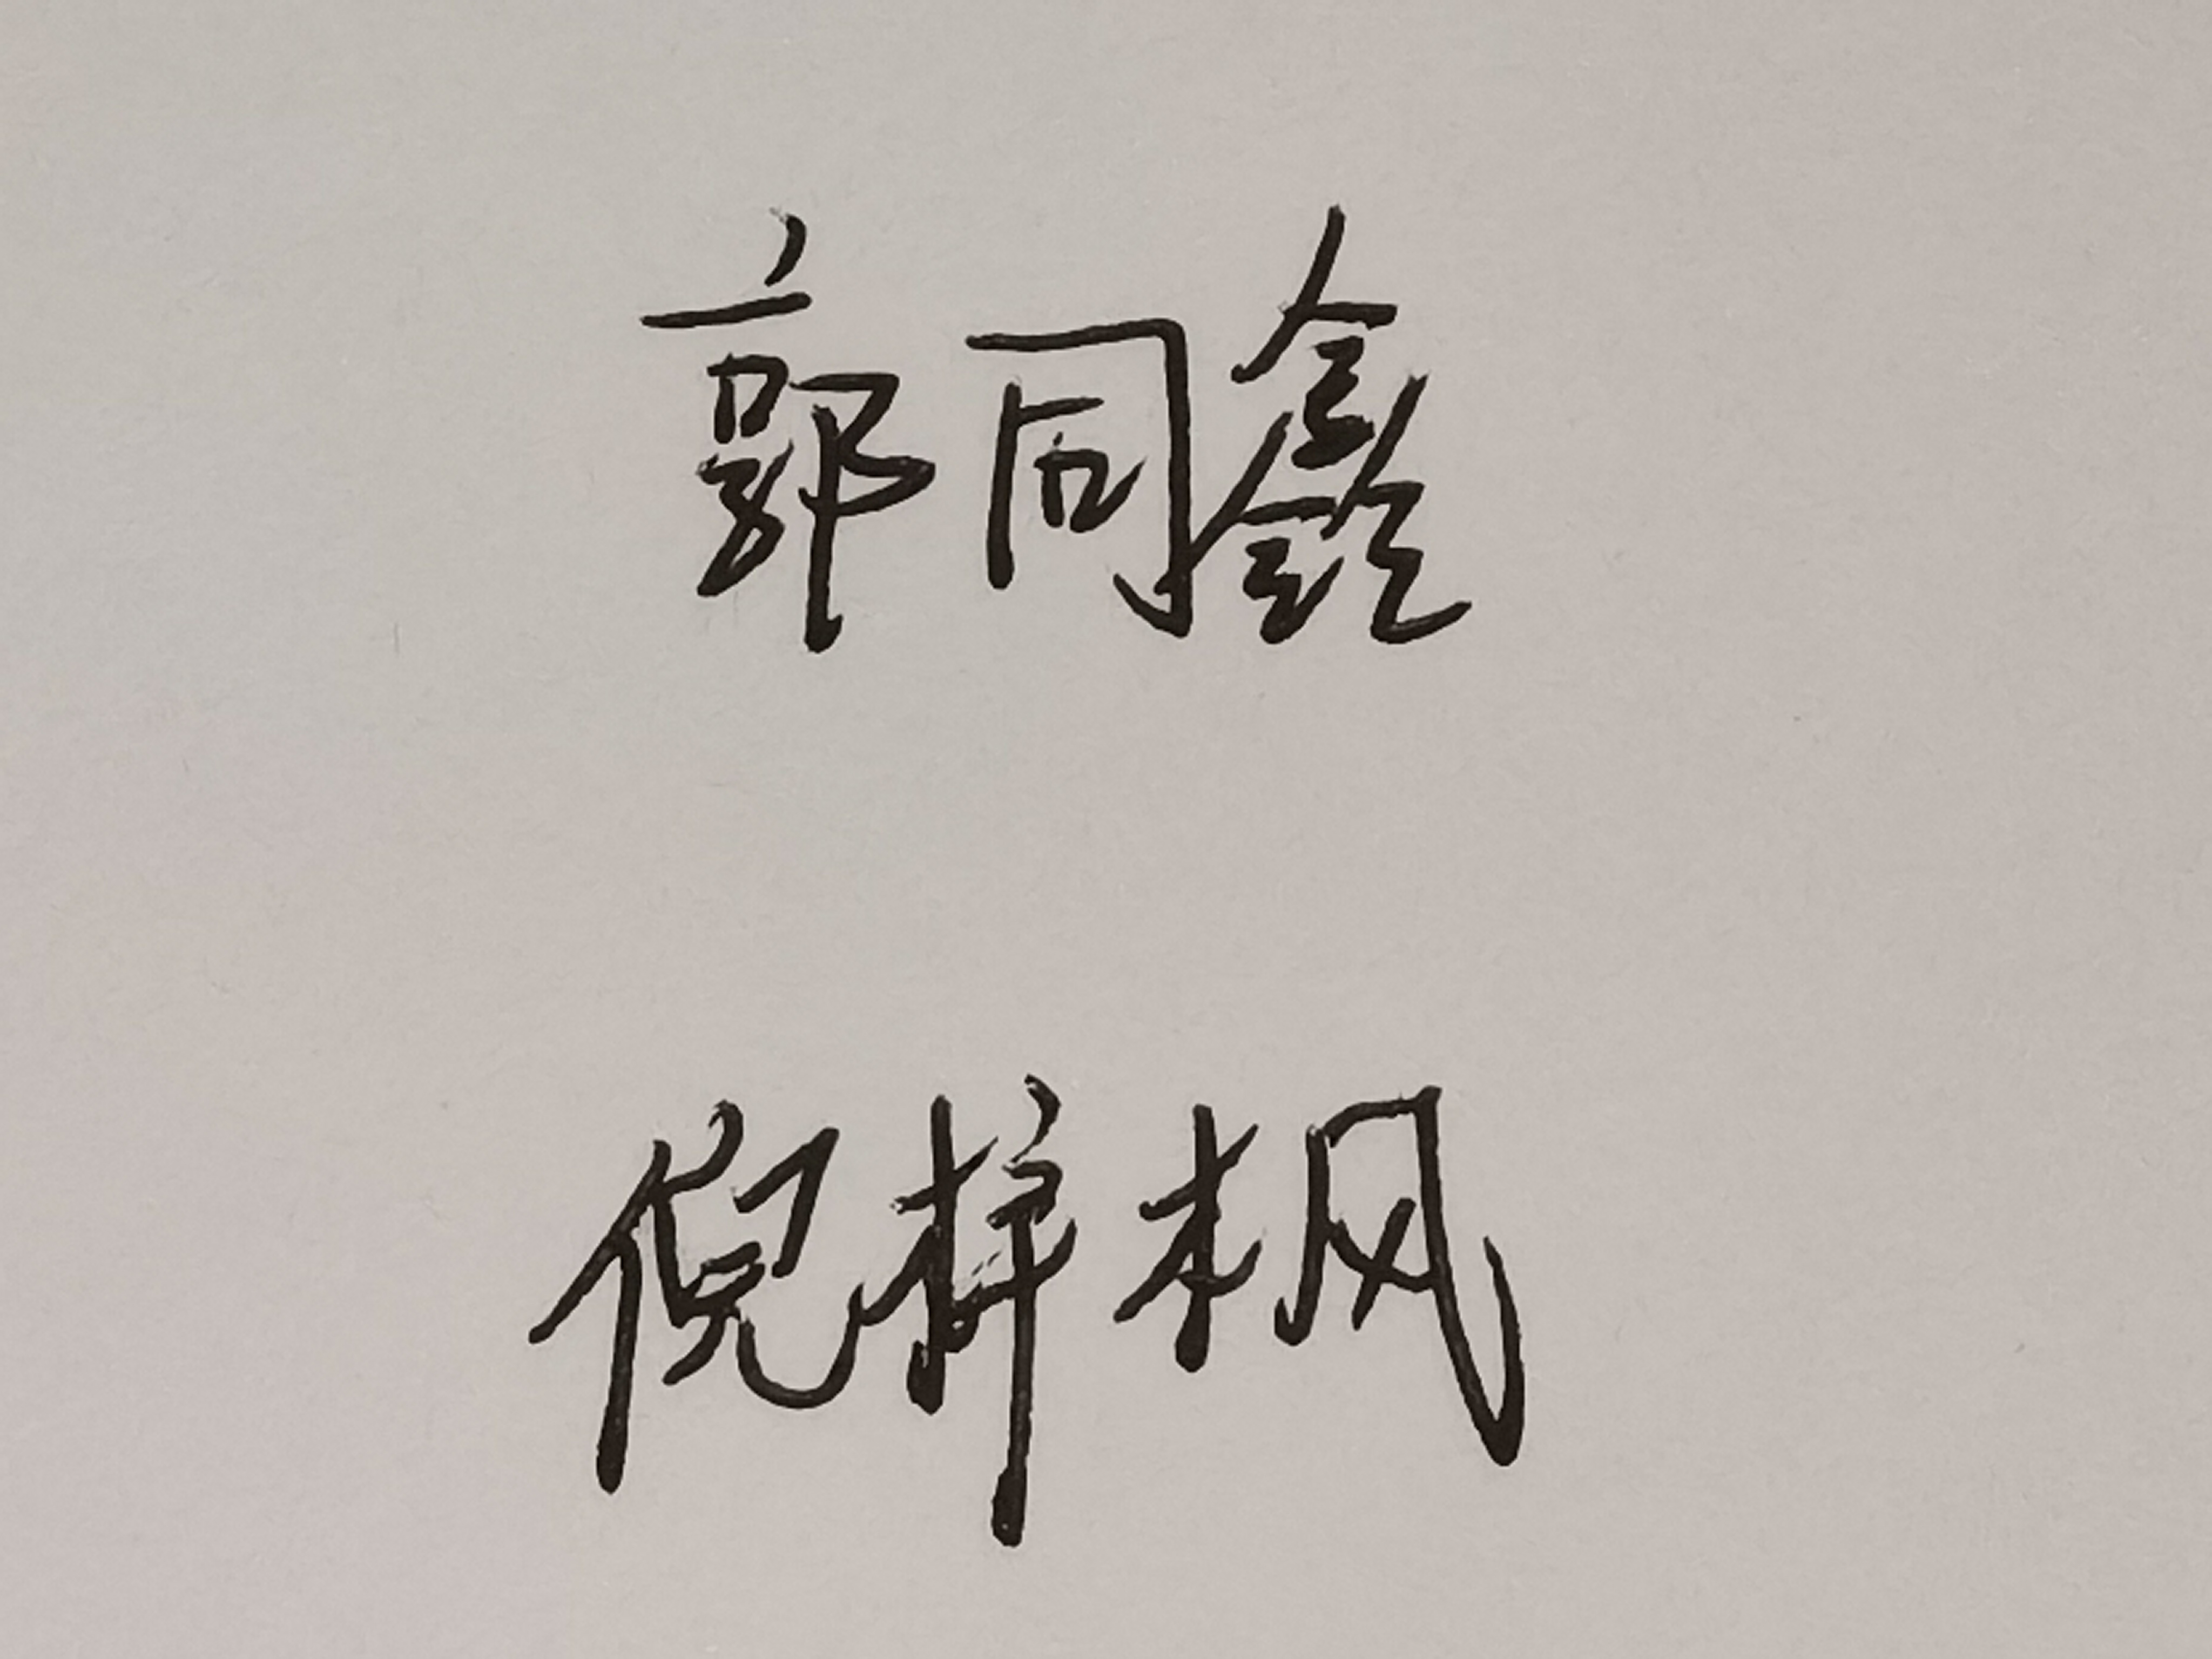 郭同鑫
倪梓枫